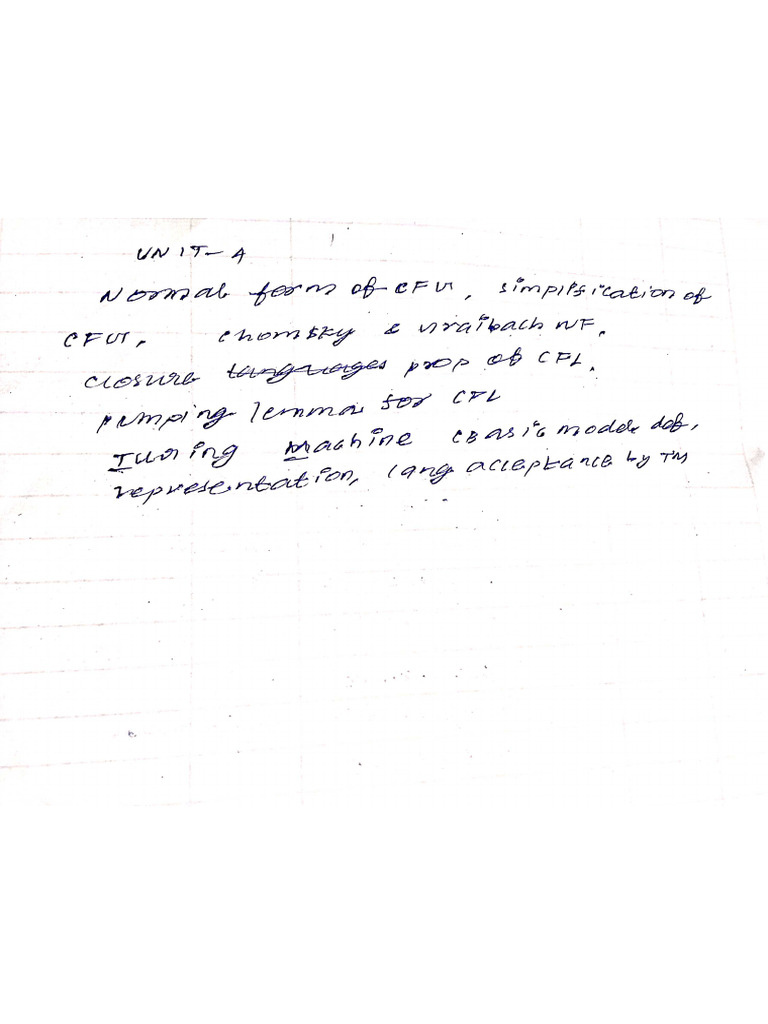 UNIT-4
Normal form of CFG, simplification of
CFG, Chomsky & Graibach NF.
closure languages prop of CFL.
pumping lemma for CFL
Turing Machine (Basic model def,
representation, lang acceptance by TM